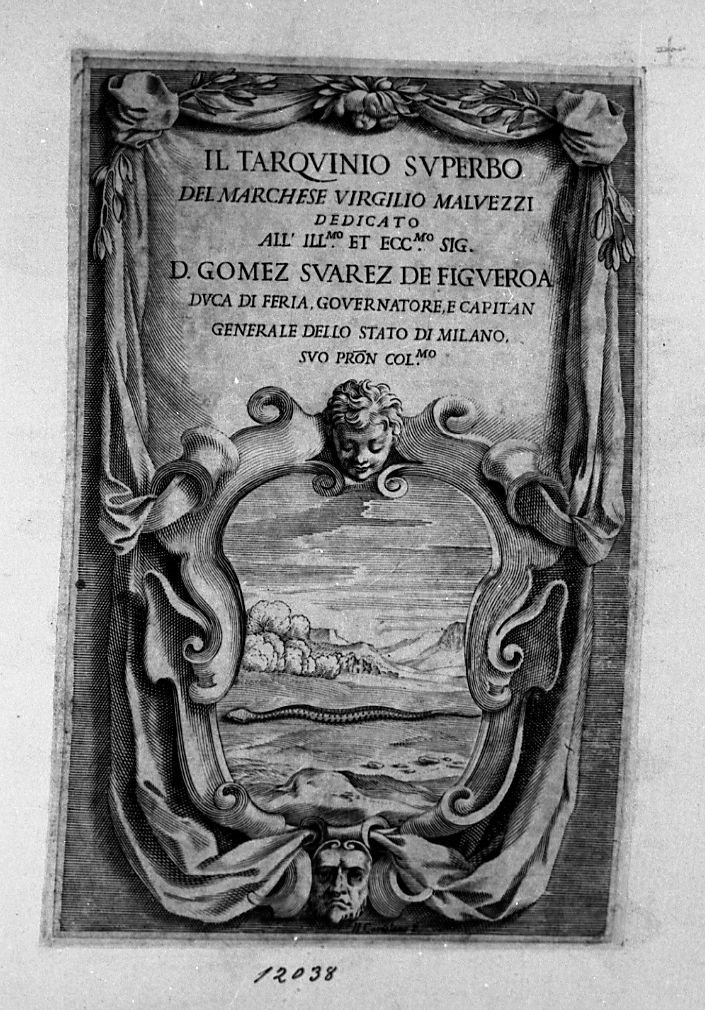 IL TARQVINIO SVPERBO
DEL MARCHESE VIRGILIO MALVEZZI
DEDICATO
ALL' ILL.MO ET ECC.MO SIG.
D. GOMEZ SVAREZ DE FIGVEROA
DVCA DI FERIA, GOVERNATORE, E CAPITAN
GENERALE DELLO STATO DI MILANO,
SVO PRŌN COL.MO
12038